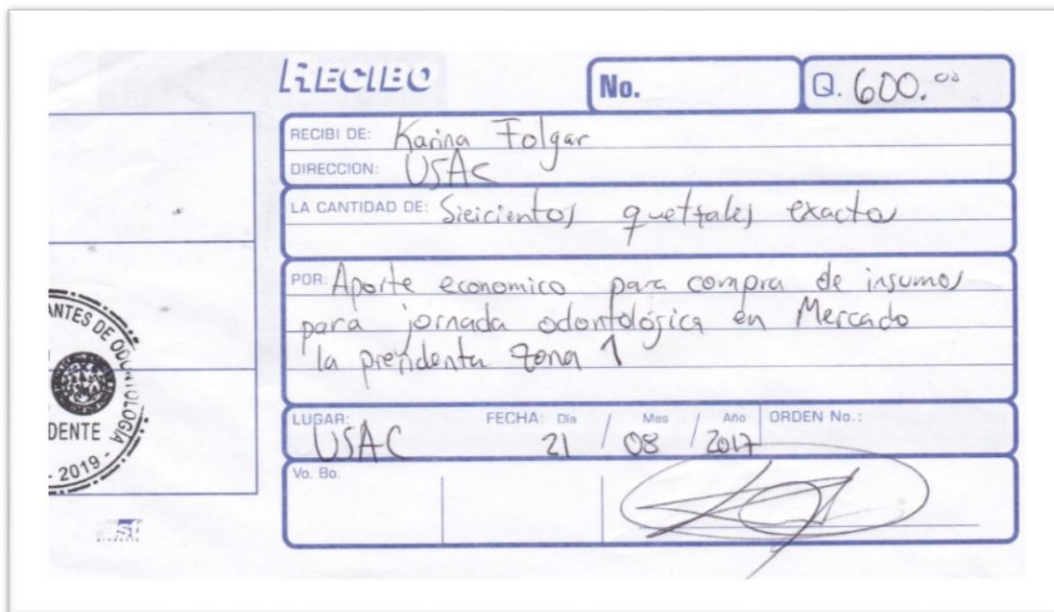 RECIBO
No.
Q. 600.00
RECIBI DE: Karina Folgar
DIRECCION: USAC
LA CANTIDAD DE: Seicientos quetzales exactos
POR: Aporte economico para compra de insumos
para jornada odontológica en Mercado
la presidenta zona 1
LUGAR: USAC
FECHA: Dia 21 / Mes 08 / Año 2017
ORDEN No.:
Vo. Bo.
ANTES DE ODONTOLOGIA
DENTE
- 2019 -